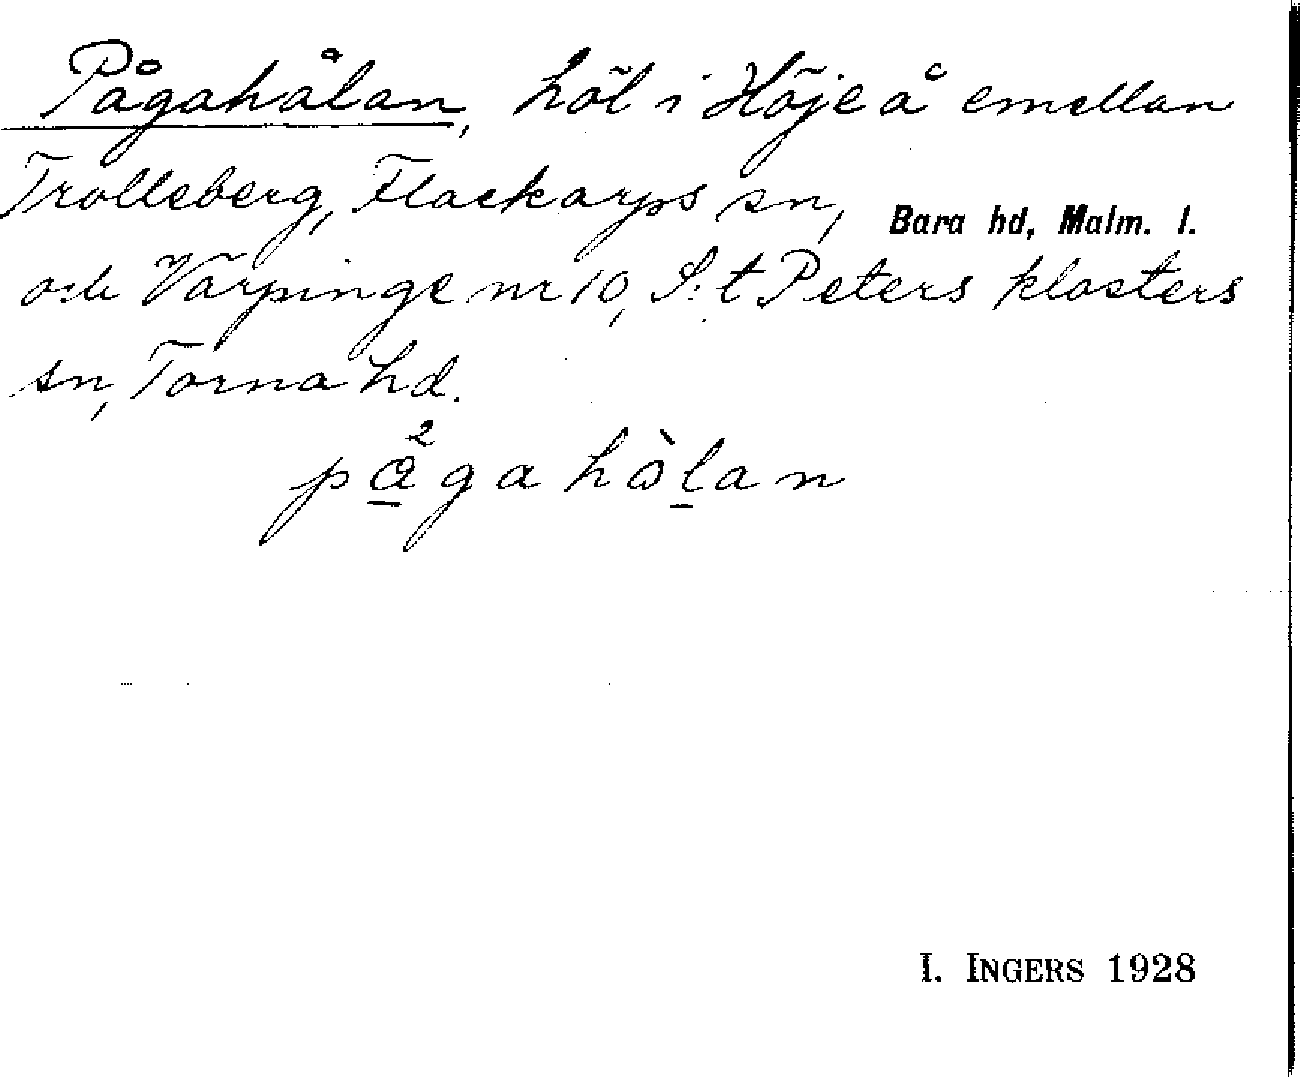 Pågahålan, höl i Höje å emellan
Trolleberg, Flackarps sn, Bara hd, Malm. l.
och Värpinge nr 10, S:t Peters klosters
sn, Torna hd.
pågahòlan
I. INGERS 1928